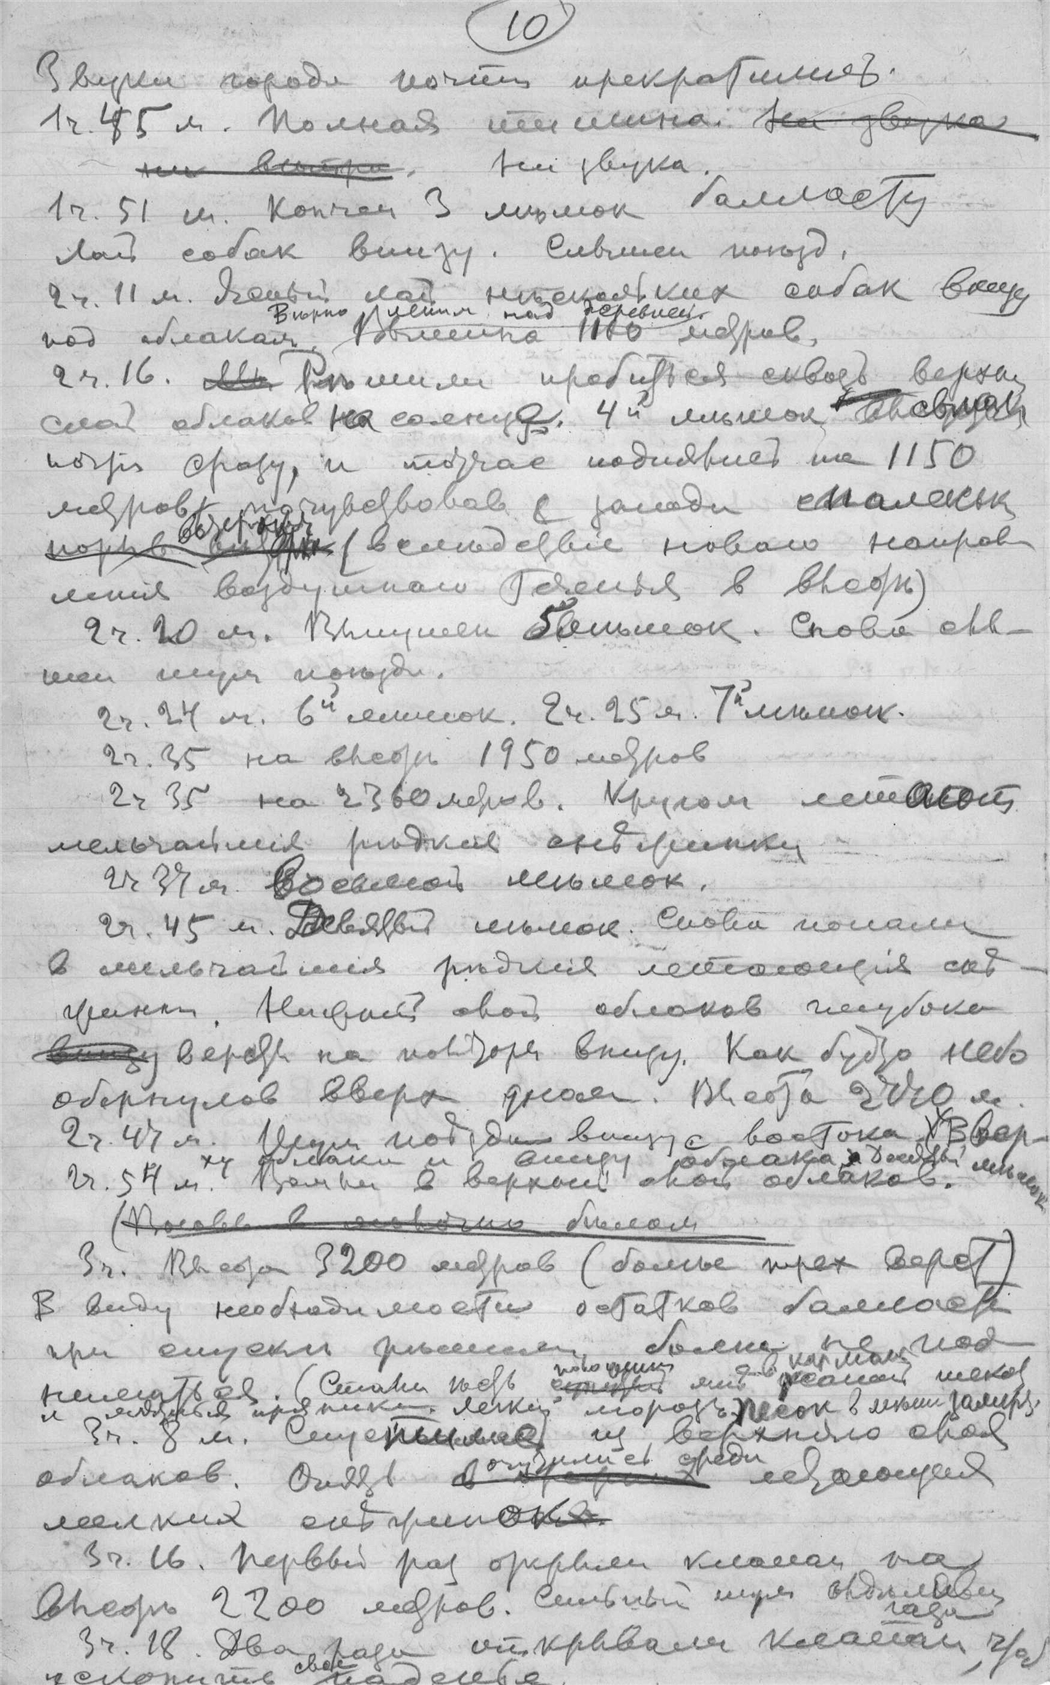 10
Звуки города почти прекратились.
1ч. 45 м. Полная тишина. Ни звука
ни вѣтра. Ни звука.
1ч. 51 м. Кончен 3 мѣшок балласту
Лай собак внизу. Слышен поѣзд.
2ч. 11 м. Ясный лай нѣскольких собак внизу
Вѣрно летим над деревней.
под облаками. Вышина 1100 метров.
2ч. 16. Мы Рѣшили пробиться сквозь верхний
слой облаков на солнце. 4й мѣшок
почти сразу, и тотчас поднялись на 1150
метров, почувствовав с запада маленький
порыв (вслѣдствіе новаго направ
ления воздушнаго теченья в высотѣ)
2ч. 20 м. Выпущен 5й мѣшок. Снова слы–
шен шум поѣзда.
2ч. 24 м. 6й мѣшок. 2ч. 25 м. 7й мѣшок.
2ч. 35 на высотѣ 1950 метров
2ч 35 на 2360 метров. Кругом летают
мельчайшия рѣдкия снѣжинки
2ч 37 м. Восьмой мѣшок.
2ч. 45 м. Девятый мѣшок. Снова попали
в мельчайшия рѣдкия летающія снѣ–
жинки. Нижний слой облаков глубоко
внизу версты на полторы внизу. Как будто небо
обернулось вверх дном. Высота 2740 м.
2ч. 47 м. Шум поѣзда внизу с востока. Ввер–
ху облака и внизу облака. Десятый мѣшок
2ч. 57 м. Вошли в верхний слой облаков.
(Плывем в молочно бѣлом
3ч. Высота 3200 метров (болѣе трех верст)
В виду необходимости остатков балласта
при спускѣ рѣшили болѣе не под
ниматься. (Стали ѣсть
мороз. Песок в мѣшк замерз.
3ч. 8 м. Спустились из верхняго слоя
облаков. Опять очутились среди летающия
мелких снѣжинок.
3ч. 16. Первый раз открыли клапан на
высотѣ 2200 метров. Сильный шум
газа
3ч. 18. Два раза открывали клапан, чтоб
ускорить свое паденье.